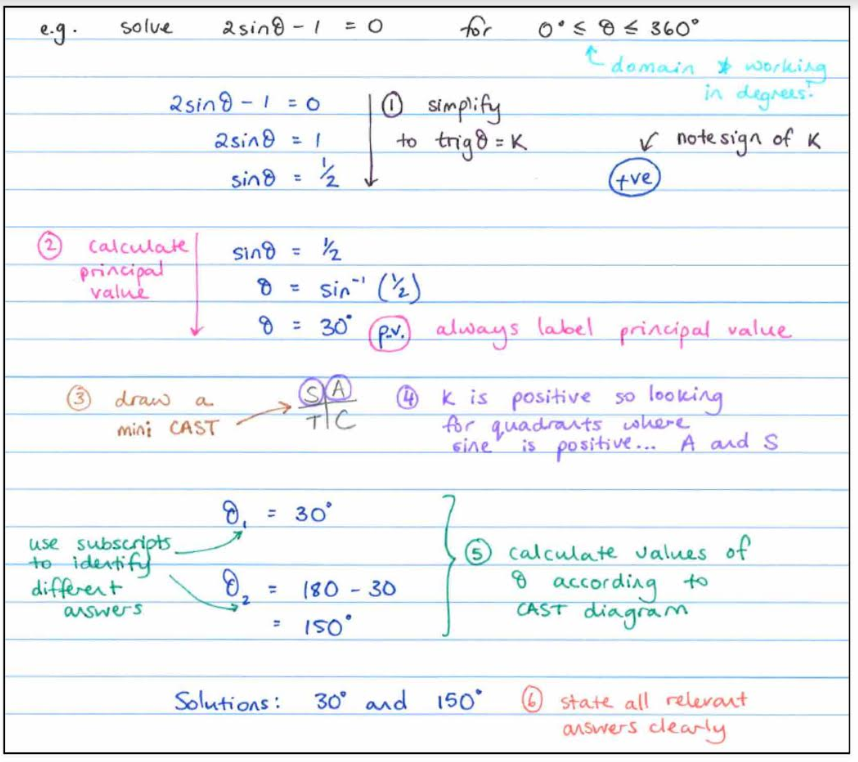 e.g. solve 2sinθ - 1 = 0 for 0° ≤ θ ≤ 360°
domain * working
in degrees!
2sinθ - 1 = 0
2sinθ = 1
sinθ = 1/2
① simplify
to trigθ = K
note sign of K
+ve
② calculate
principal
value
sinθ = 1/2
θ = sin⁻¹ (1/2)
θ = 30° p.v. always label principal value
③ draw a
mini CAST
S A
T C
④ K is positive so looking
for quadrants where
sine is positive... A and S
θ₁ = 30°
use subscripts
to identify
different
answers
θ₂ = 180 - 30
= 150°
⑤ calculate values of
θ according to
CAST diagram
Solutions: 30° and 150°
⑥ state all relevant
answers clearly